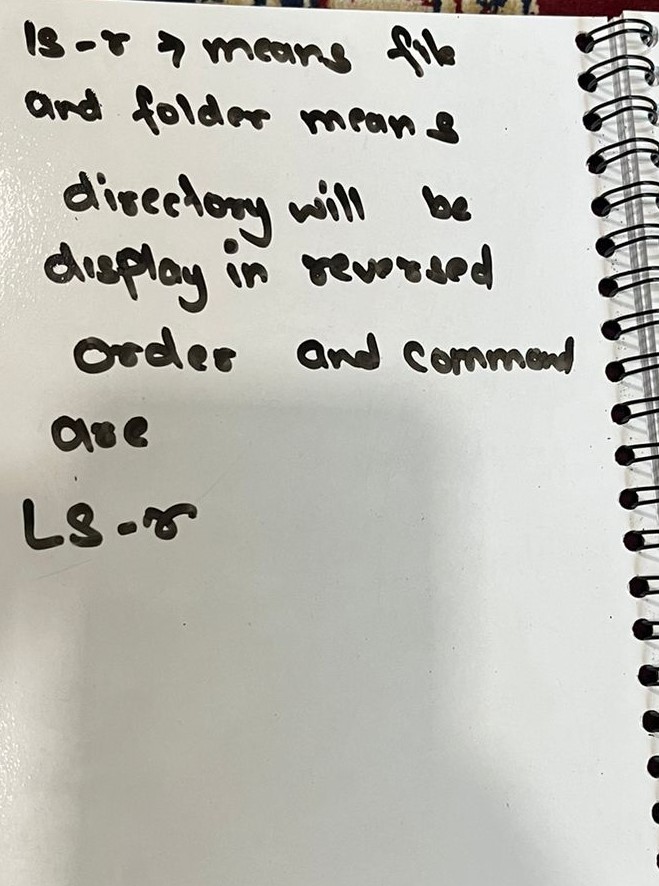 ls -r → means file
and folder means
directory will be
display in reversed
order and command
are
LS -r